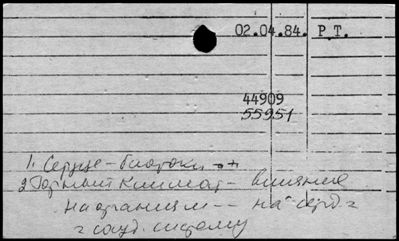 02.04.84. Р.Т.
44909
55951
1. Сердце - биотоки
2 Горный климат - влияние
на организм -- на серд.
сосуд. систему